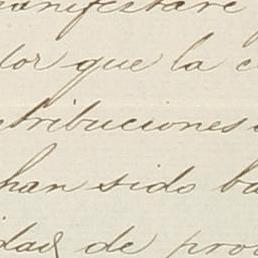 manifestare
dor que la c
ntribuciones
han sido ba
idad de prov